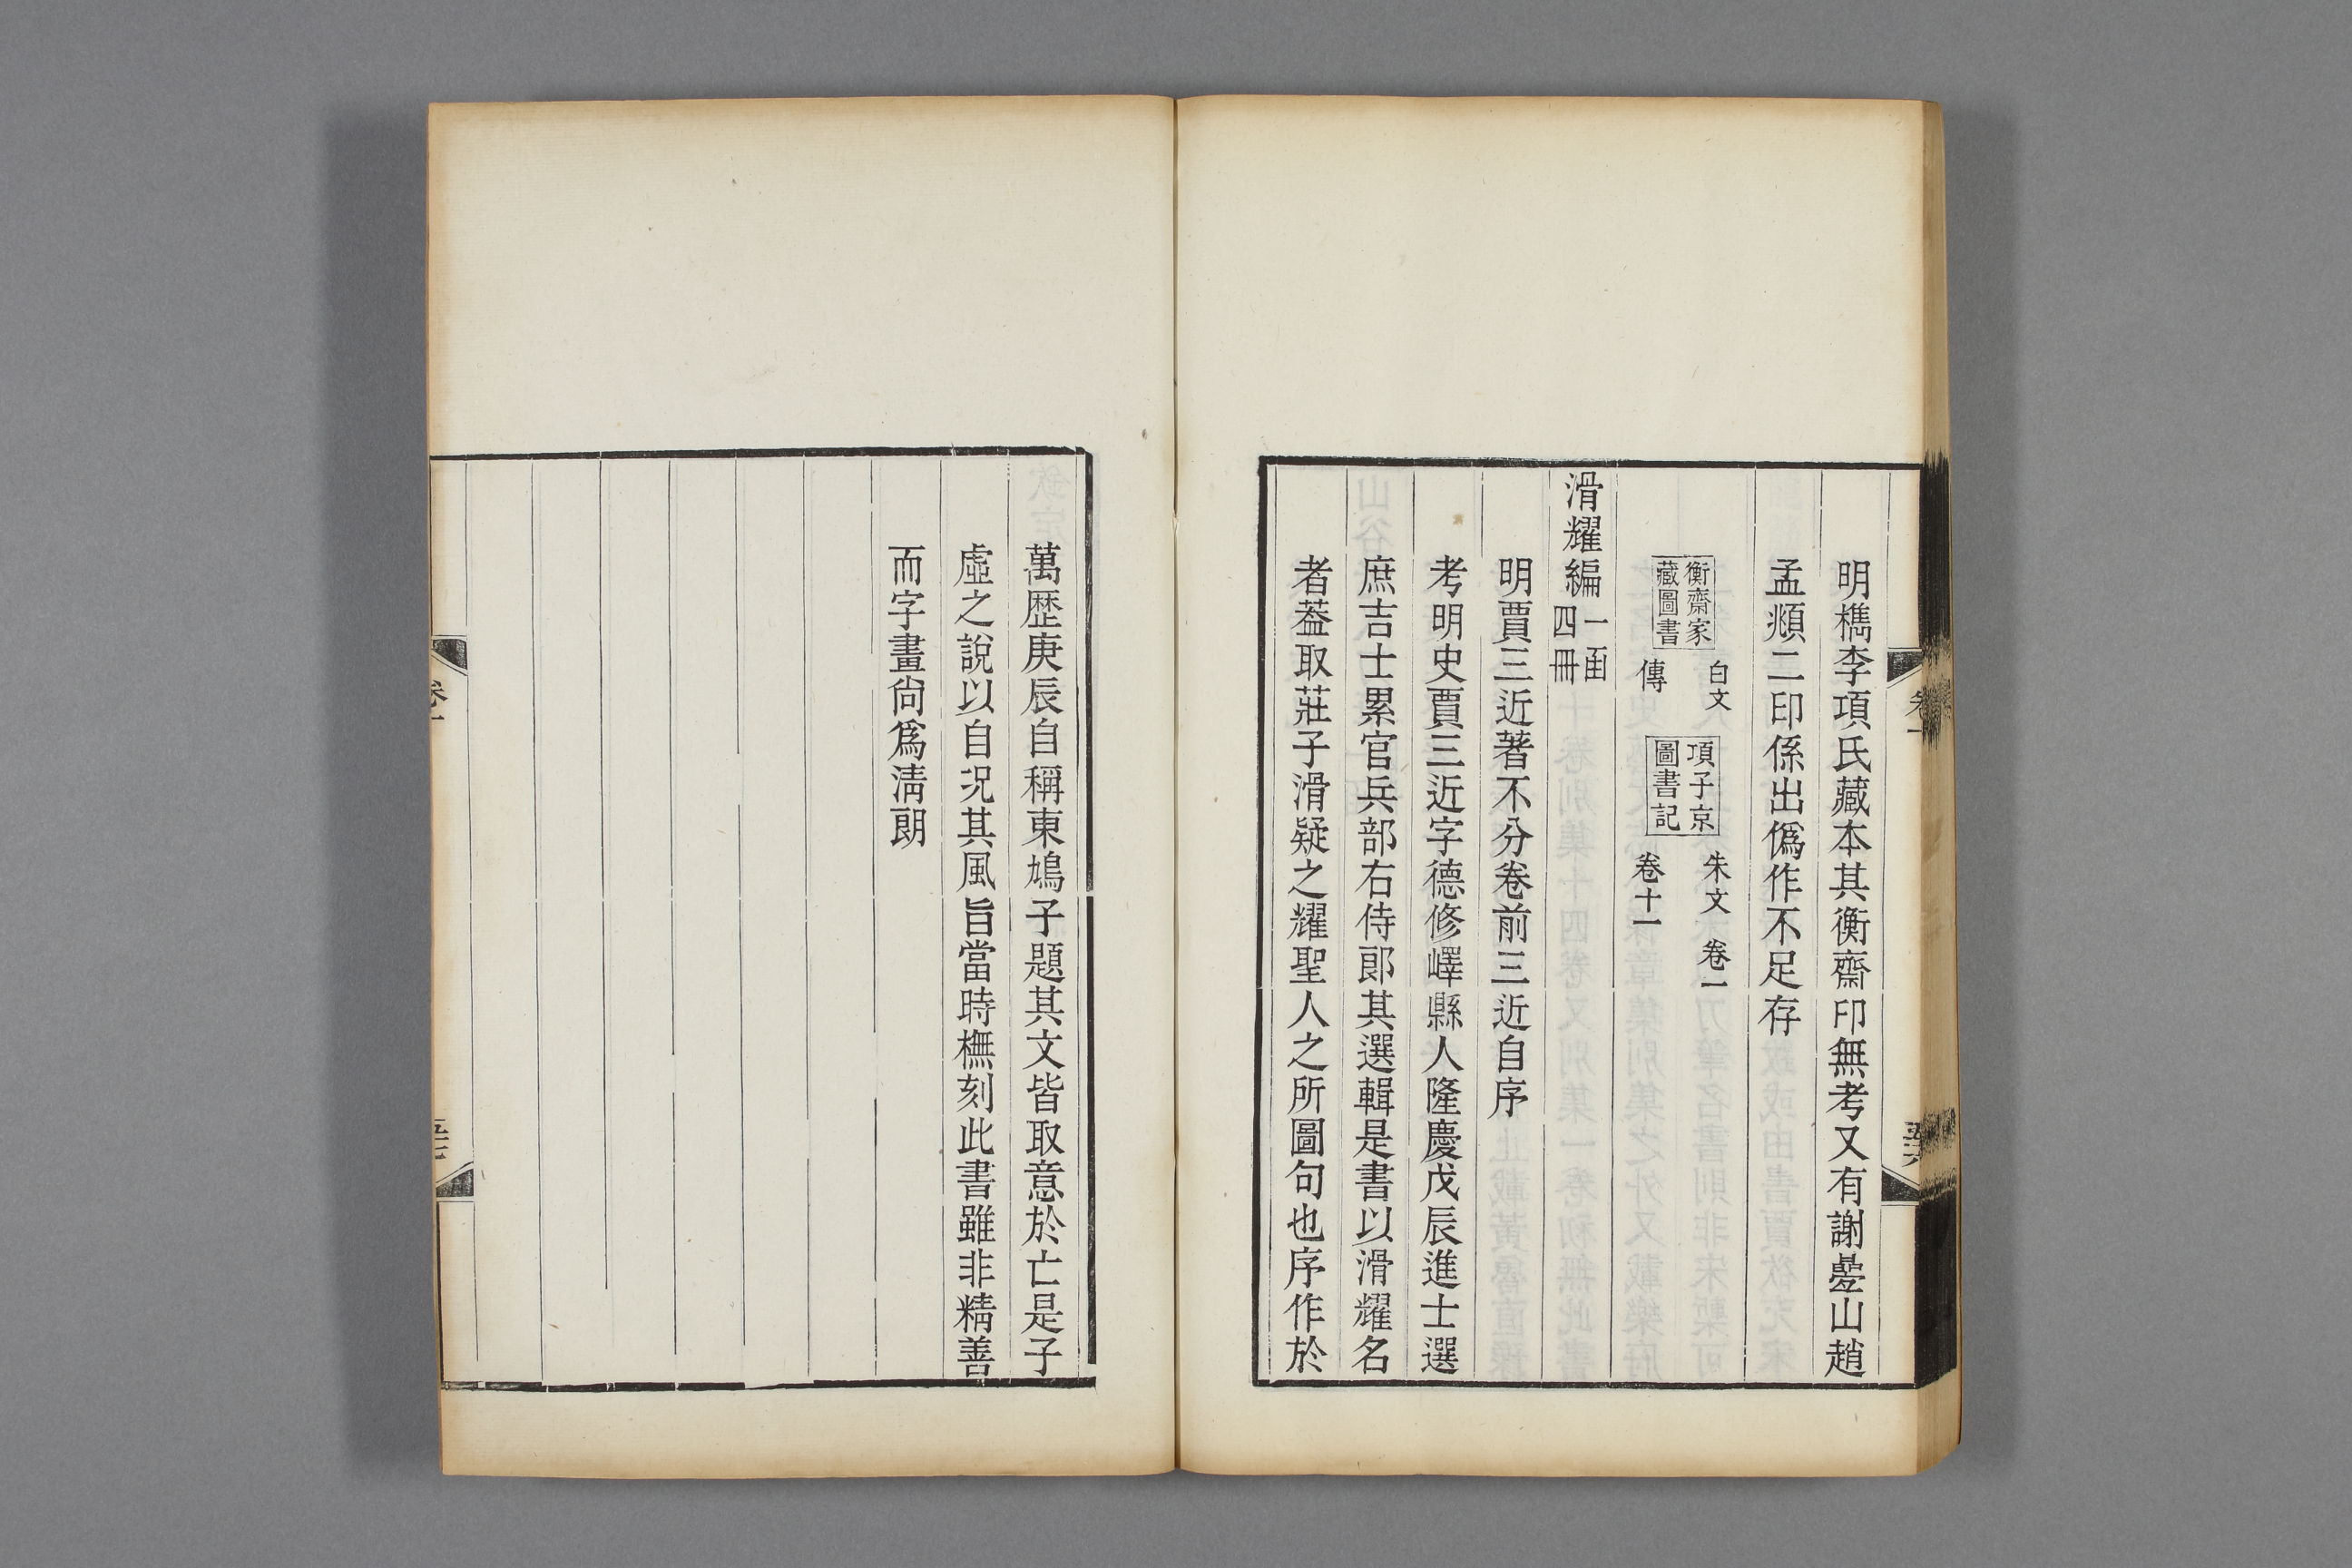 明檇李項氏藏本其衡齋印無考又有謝疊山趙
孟頫二印係出僞作不足存
衡齋家
藏圖書
白文
傳
項子京
圖書記
朱文 卷一
卷十一
滑耀編 一函
四冊
明賈三近著不分卷前三近自序
考明史賈三近字德修嶧縣人隆慶戊辰進士選
庶吉士累官兵部右侍郎其選輯是書以滑耀名
者葢取莊子滑疑之耀聖人之所圖句也序作於
萬歷庚辰自稱東鳩子題其文皆取意於亡是子
虛之說以自况其風旨當時橅刻此書雖非精善
而字畫尙爲淸朗
卷十